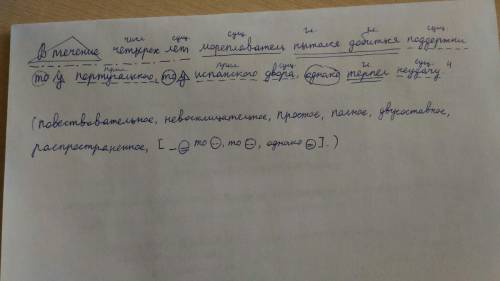 числ. сущ. сущ. гл. гл. сущ.
В течение четырех лет мореплаватель пытался добиться поддержки
прил. прил. сущ. гл. сущ. 4
то у португальского, то у испанского двора, однако терпел неудачу.
(повествовательное, невосклицательное, простое, полное, двусоставное,
распространенное, [ – то , то , однако ]. )